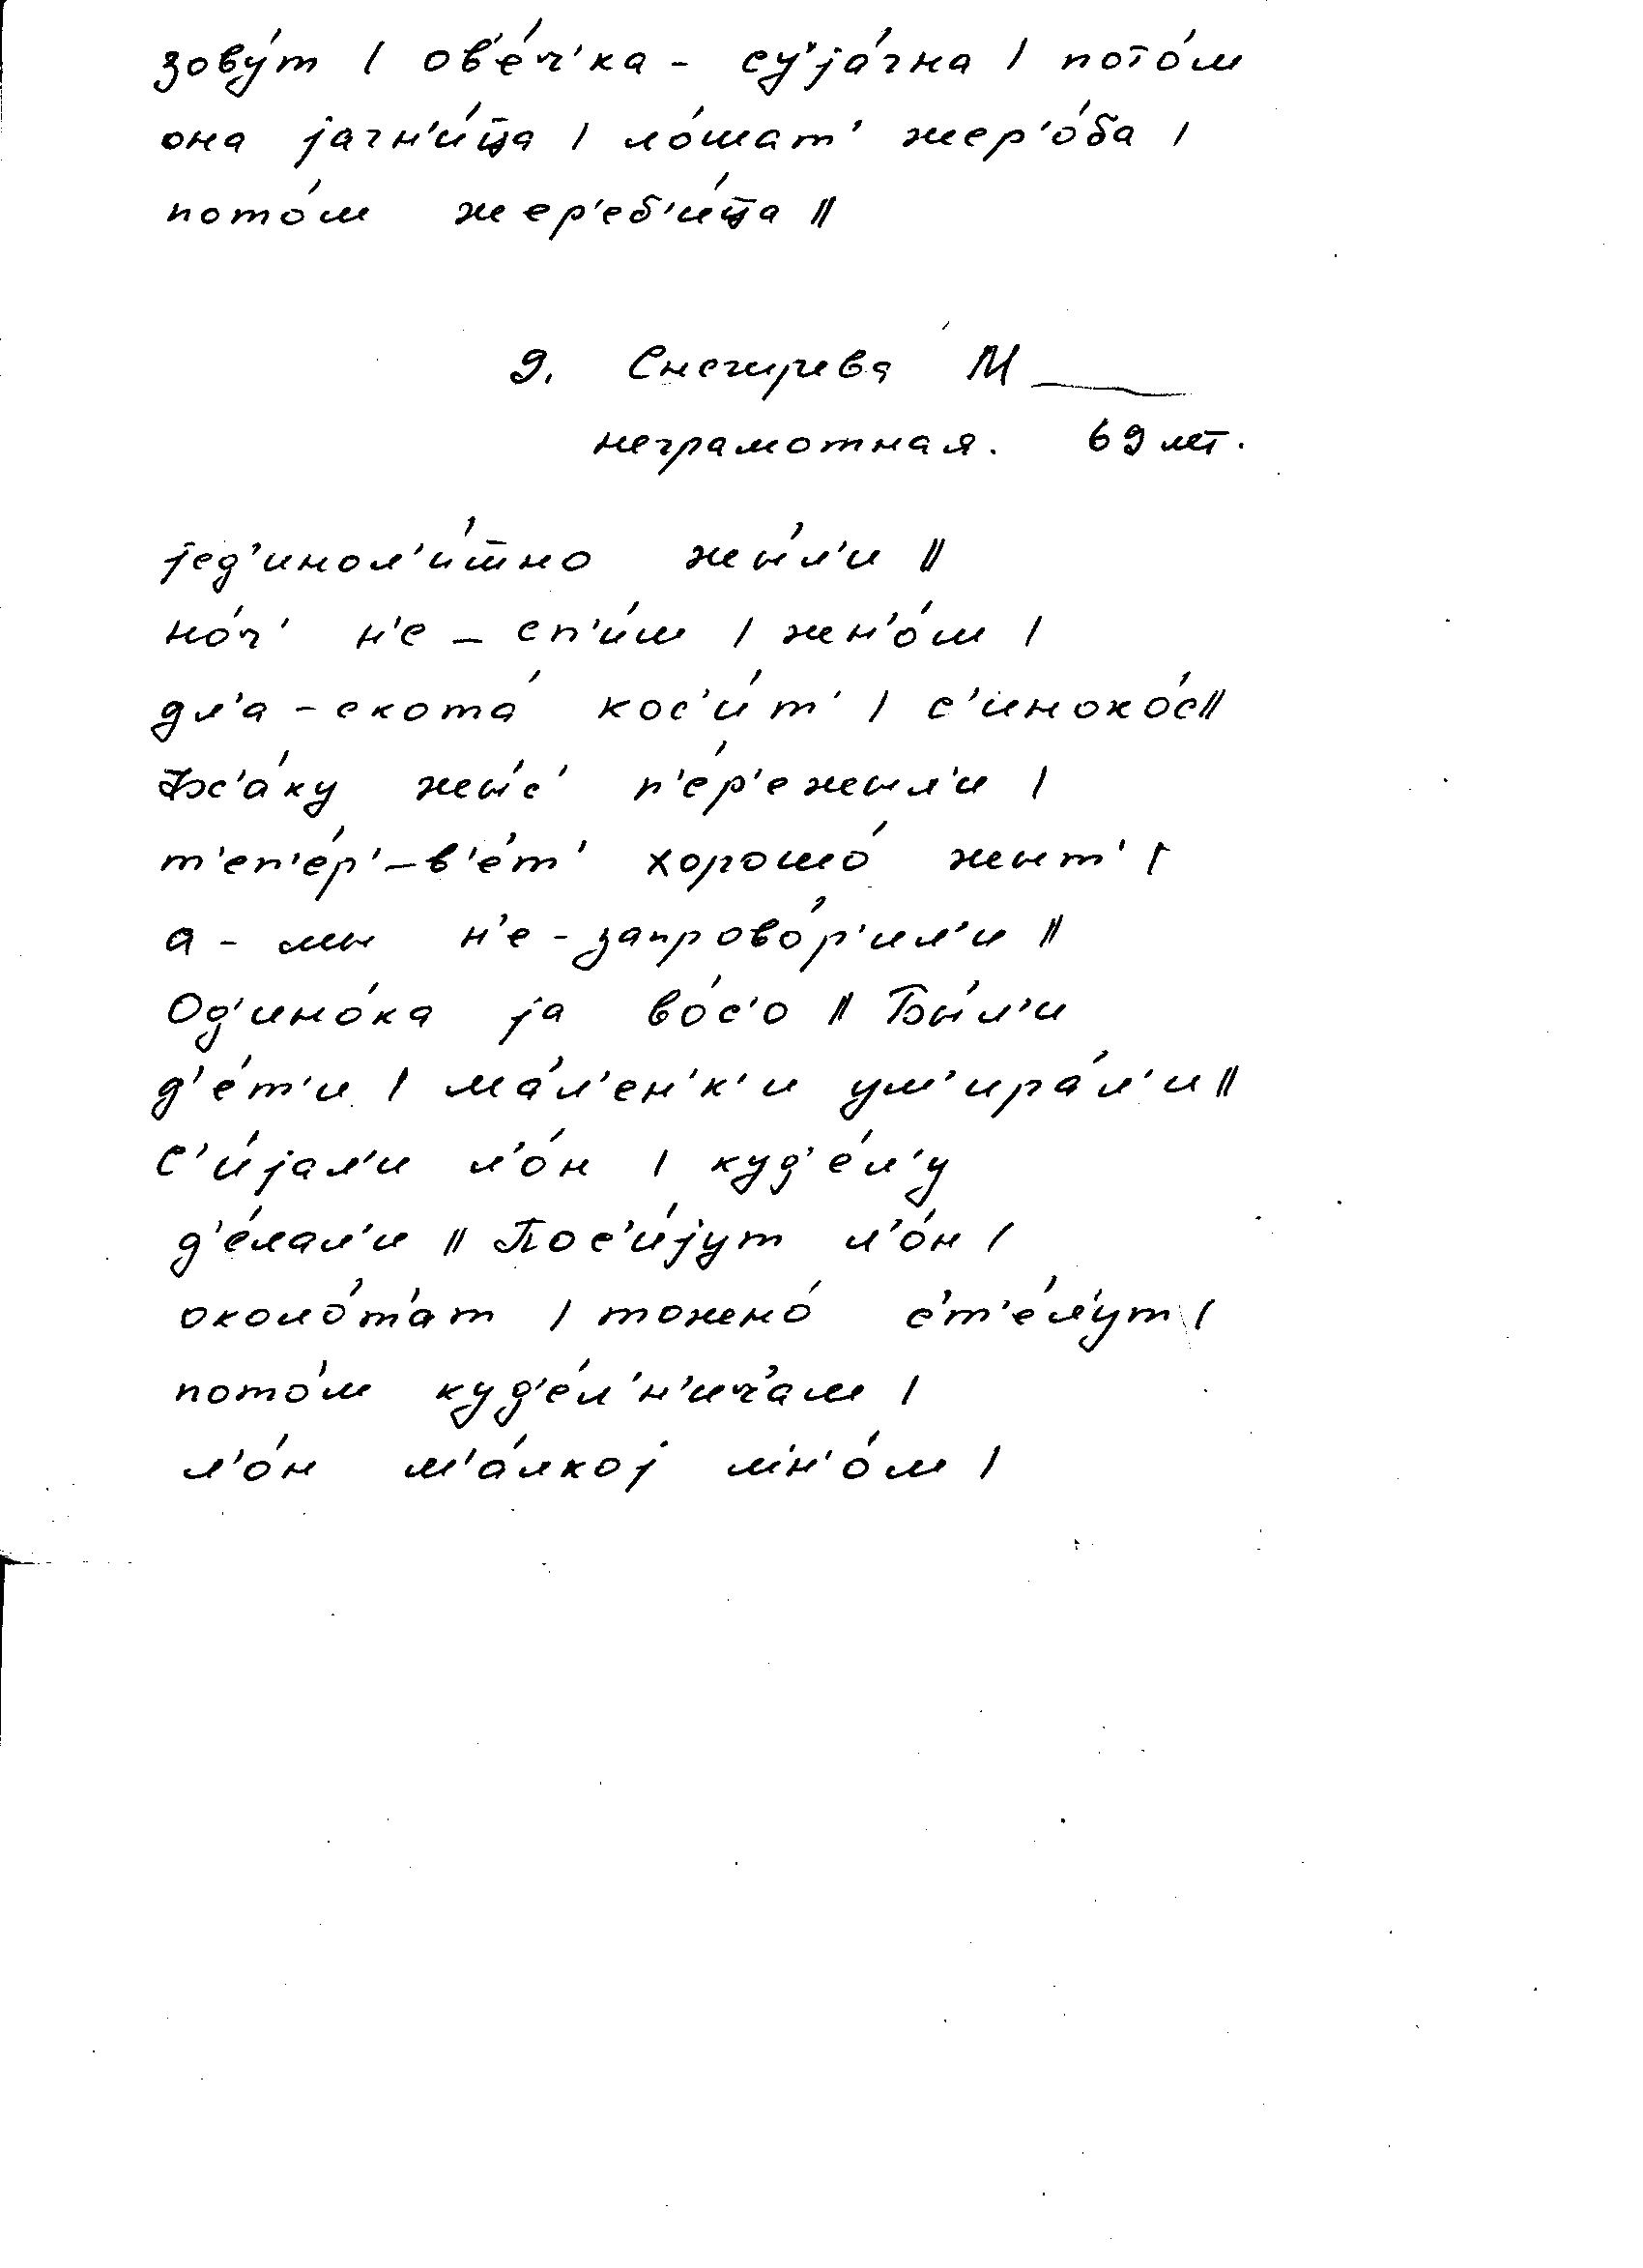 зову́т / ов'е́ч'ка – су̇ја́гна / пото́м
она јагн'и́ц̄а / ло́шат' жер'о́ба /
пото́м жер'еб'и́ц̄а //
9. Снегирева М____
неграмотная. 69 лет.
јед'инол'и́т̄но жы́л'и //
но́ч' н'е – сп'и́м / жн'о́м /
дл'а – скота́ кос'и́т' / с'иноко́с //
Фс'а́ку жы́с' п'е́р'ежыл'и /
т'еп'е́р' – в'е́т' хорошо́ жыт' /
а – мы н'е – запрово́р'ил'и //
Од'ино́ка ја во́с'о // Бы́л'и
д'е́т'и / ма́л'ен'к'и ум'ира́л'и //
С'и́јал'и л'о́н / куд'е́л'у
д'е́лал'и // Пос'и́јут л'о́н /
околот'а́т / тожно́ с'т'е́л'ут /
пото́м куд'е́л'н'ич'ам /
л'о́н м'а́лкој мн'о́м /